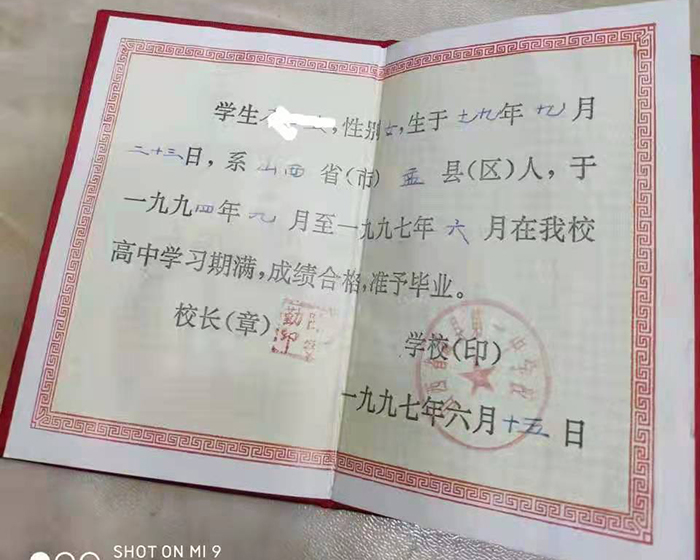 学生 ，性别女，生于七九年九月
二十三日，系山西省(市)盂县(区)人，于
一九九四年九月至一九九七年六月在我校
高中学习期满，成绩合格，准予毕业。
校长(章)
学校(印)
一九九七年六月十五日
SHOT ON MI 9